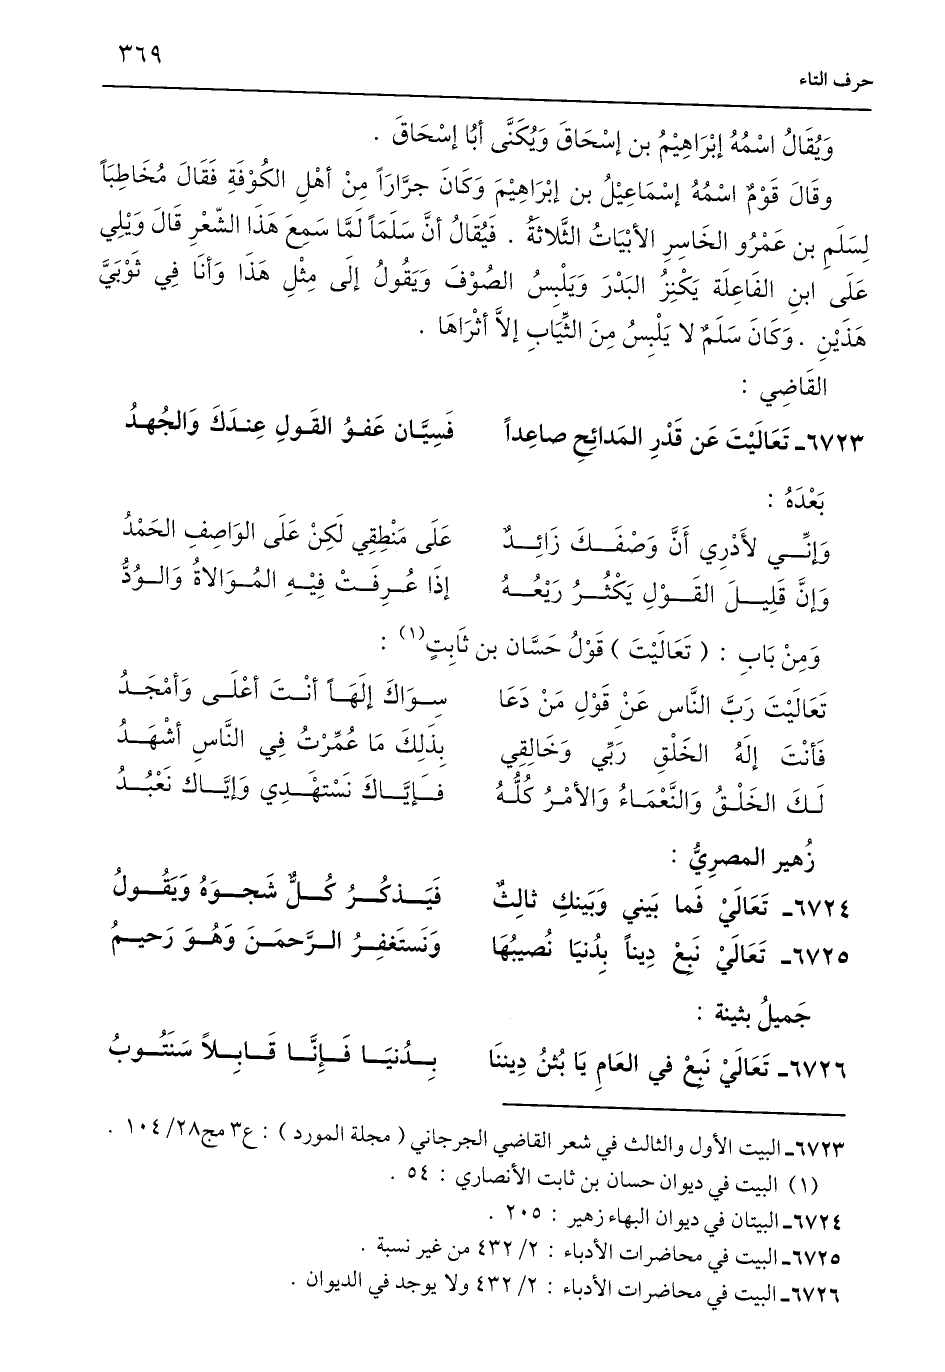 ٣٦٩
حرف التاء
وَيُقَالُ اسْمُهُ إبْرَاهِيْمُ بن إسْحَاقَ وَيُكَنَّى أبُا إسْحَاقَ .
وقَالَ قَوْمٌ اسْمُهُ إسْمَاعِيْلُ بن إبْرَاهِيْمَ وَكَانَ جرَّارَاً مِنْ أهْلِ الكُوْفَةِ فَقَالَ مُخَاطِبَاً
لِسَلَمِ بن عَمْرُو الخَاسِرِ الأبْيَاتُ الثَّلاثَةُ . فَيُقَالُ أنَّ سَلَمَاً لَمَّا سَمِعَ هَذَا الشِّعْرِ قَالَ وَيْلِي
عَلَى ابنِ الفَاعِلَة يَكْنِزُ البَدْرَ وَيَلْبِسُ الصُوْفَ وَيَقُولُ إلَى مِثْلِ هَذَا وَأنَا فِي ثَوْبَيَّ
هَذَيْنِ . وَكَانَ سَلَمٌ لا يَلْبِسُ مِنَ الثِّيَابِ إلاَّ أثْرَاهَا .
القَاضِي :
٦٧٢٣ـ تَعَالَيْتَ عَن قَدْرِ المَدائِحِ صاعِداً فَسِيَّان عَفوُ القَولِ عِندَكَ وَالجُهدُ
بَعْدَهُ :
وَإنِّـــي لأَدْرِي أنَّ وَصْفَــكَ زَائِــدٌ عَلَى مَنْطِقِي لَكِنْ عَلَى الوَاصِفِ الحَمْدُ
وَإنَّ قَلِيــلَ القَــوْلِ يَكْثُــرُ رَيْعُــهُ إذَا عُــرِفَــتْ فِيْــهِ المُــوَالاةُ وَالــوُدُّ
وَمِنْ بَابِ : ( تَعَالَيْتَ ) قَوْلُ حَسَّان بن ثَابِتٍ(١) :
تَعَالَيْتَ رَبَّ النَّاس عَنْ قَوْلِ مَنْ دَعَا سِــوَاكَ إلَهَــاً أنْــتَ أعْلَــى وَأمْجَــدُ
فَأنْتَ إلَهُ الخَلْقِ رَبِّي وَخَالِقِي بِذَلِكَ مَا عُمِّرْتُ فِي النَّاسِ أشْهَــدُ
لَـكَ الخَلْـقُ وَالنَّعْمَـاءُ وَالأمْـرُ كُلُّـهُ فَــإيَّــاكَ نَسْتَهْــدِي وَإيَّــاكَ نَعْبُــدُ
زُهَير المصرِيُّ :
٦٧٢٤ـ تَعَالَيْ فَما بَيني وَبَينكِ ثالِثٌ فَيَـذكُـرُ كُـلٌّ شَجـوَهُ وَيَقُـولُ
٦٧٢٥ـ تَعَالَيْ نَبِعْ دِيناً بِدُنيَا نُصيبُهَا وَنَستَغفِـرُ الـرَّحمَـنَ وَهُـوَ رَحيـمُ
جَميلُ بثينة :
٦٧٢٦ـ تَعَالَيْ نَبِعْ في العَامِ يَا بُثنُ دِيننَا بِــدُنيَــا فَــإنَّــا قَــابِــلاً سَنَتُــوبُ
٦٧٢٣ـ البيت الأول والثالث في شعر القاضي الجرجاني ( مجلة المورد ) : ع٣ مج٢٨/ ١٠٤ .
(١) البيت في ديوان حسان بن ثابت الأنصاري : ٥٤ .
٦٧٢٤ـ البيتان في ديوان البهاء زهير : ٢٠٥ .
٦٧٢٥ـ البيت في محاضرات الأدباء : ٢/ ٤٣٢ من غير نسبة .
٦٧٢٦ـ البيت في محاضرات الأدباء : ٢/ ٤٣٢ ولا يوجد في الديوان .